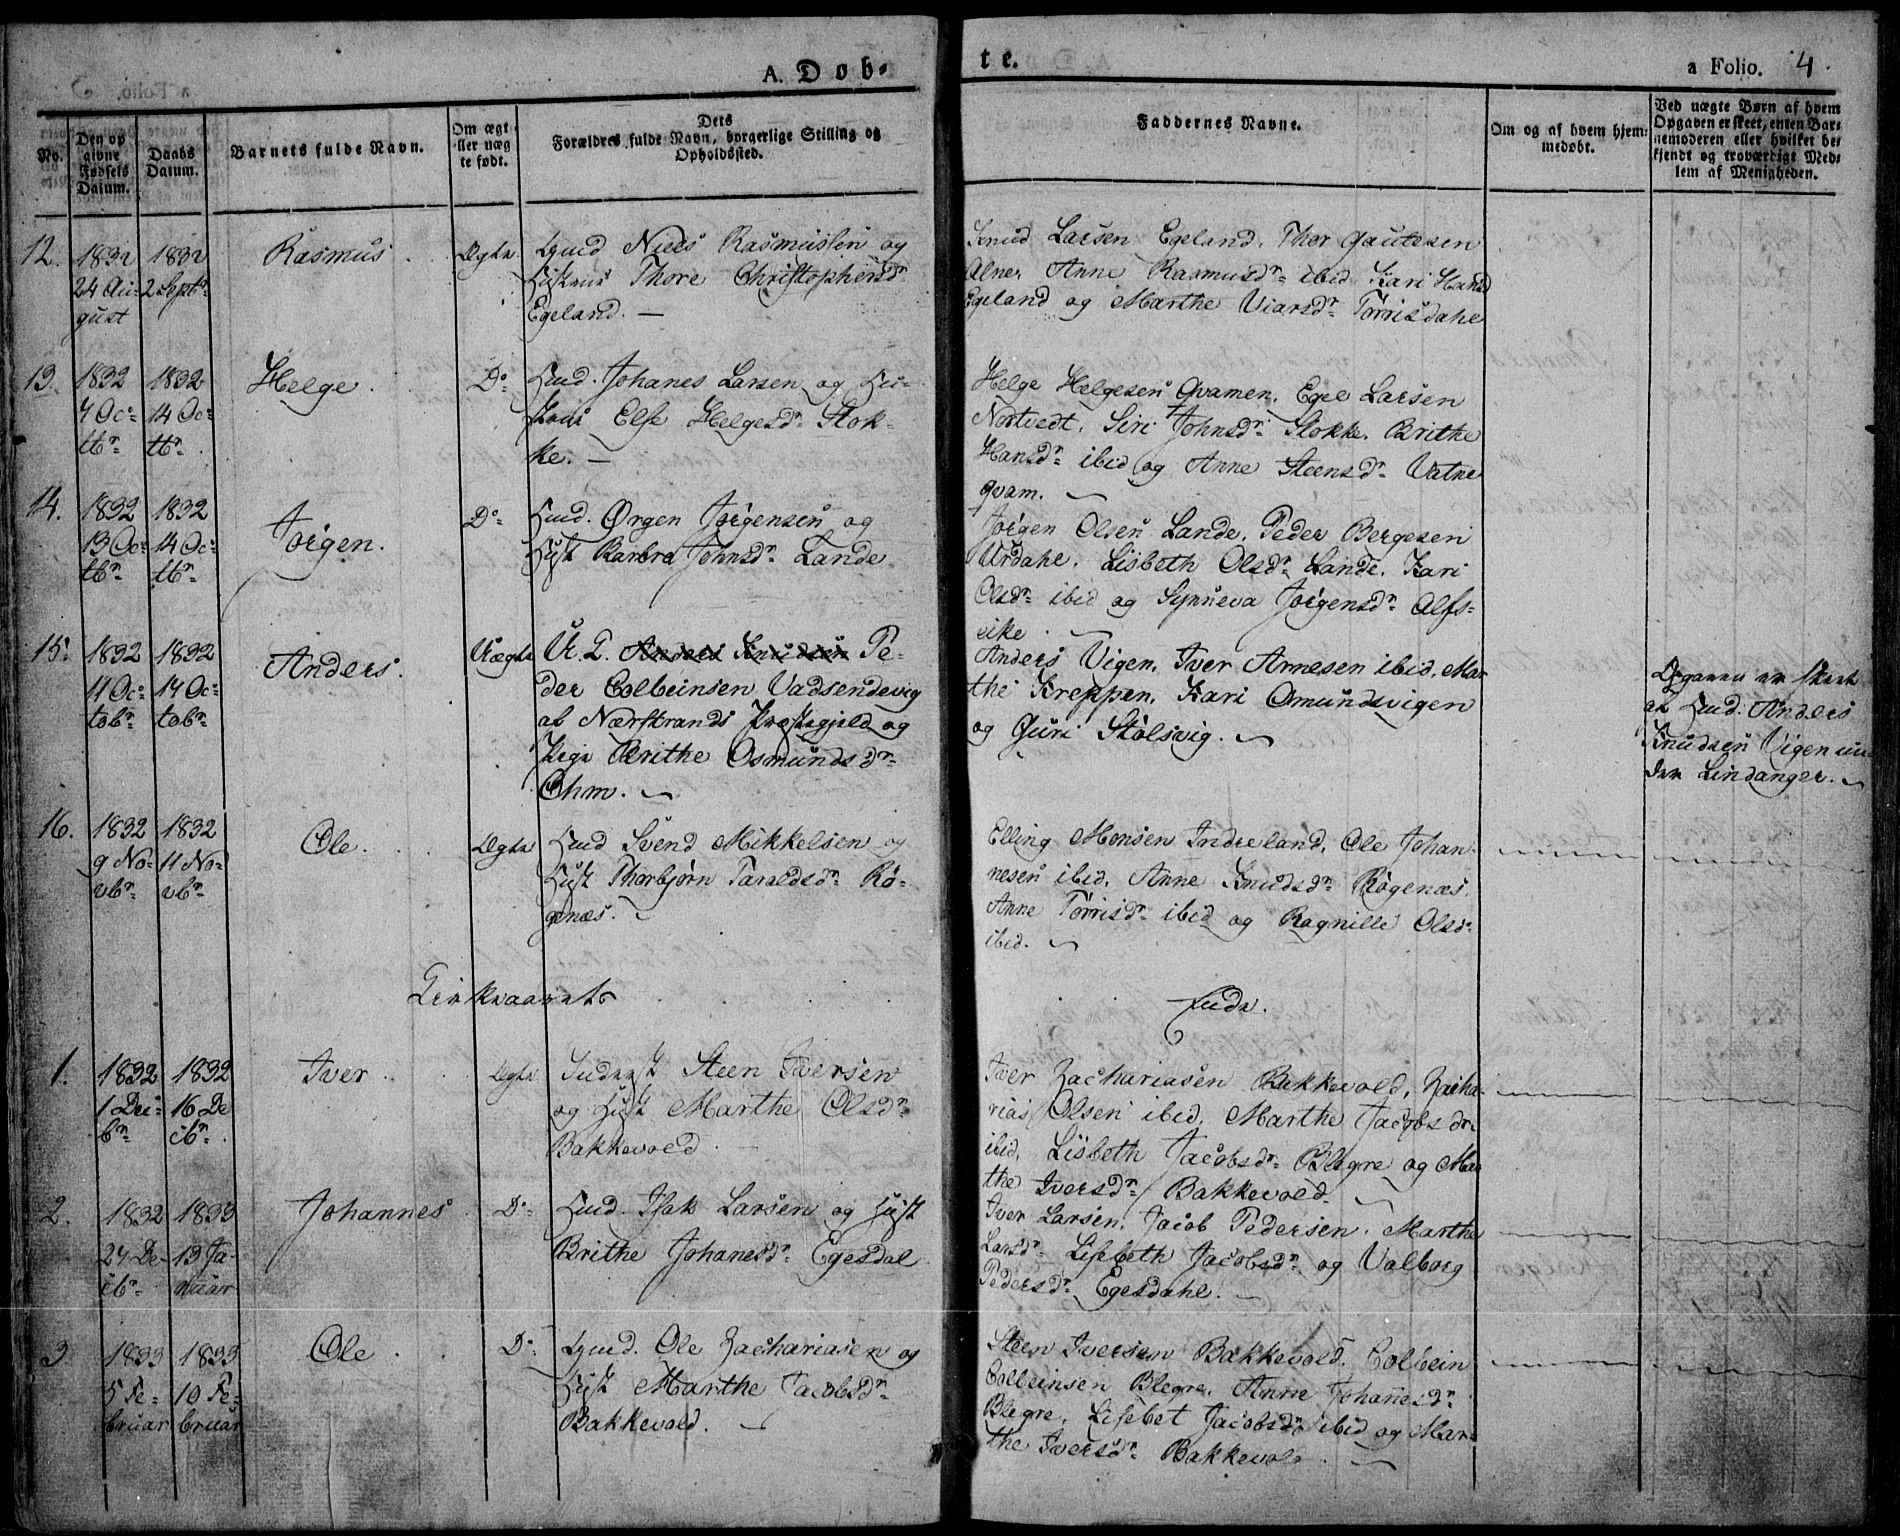 A. Døb-
te.
a Folio. 4.
No.
Den op
givne
Fødsels
Datum.
Daabs
Datum.
Barnets fulde Navn.
Om ægt
eller uæg
te født.
Dets
Forældres fulde Navn, borgerlige Stilling og
Opholdssted.
Faddernes Navne.
Om og af hvem hjem-
medøbt.
Ved uægte Børn af hvem
Opgaven er skeet, enten Bar-
nemoderen eller hvilket be-
kjendt og troværdigt Med-
lem af Menigheden.
12.
1832
24 Au-
gust
1832
2 Septr
Rasmus
Ægte
Gmd Niels Rasmussen og
Hustrue Thore Christophersdr
Egeland. —
Knud Larsen Egeland. Thor Gautesen
Alner, Anne Rasmusdr ibid Kari Hansd
Egeland og Marthe Viarsdr Tørrisdahl
13.
1832
7 Oc-
tbr
1832
14 Oc-
tbr.
Helge
Do
Hud. Johanes Larsen og Hu-
strue Else Helgesdr Stok-
ke. —
Helge Helgesen Qvamen. Egel Larsen
Nortvedt. Siri Johnsdr Stokke. Brithe
Hansdr ibid og Anne Steensdr Vatne
qvam.
14.
1832
13 Oc-
tbr
1832
14 Oc-
tbr
Jørgen.
Do
Hud. Ørgen Jørgensen og
Hust Barbra Johnsdr Lande
Jørgen Olsen Lande. Peder Bergesen
Urdahl. Lisbeth Olsdr Lande. Kari
Olsdr ibid og Synneva Jørgensdr Alfs-
eike.
15.
1832
11 Oc-
tobr
1832
14 Oc-
tobr
Anders.
Uægte
U. L. Anders Knudsen Pe-
der Colbeinsen Vadsendevig
af Nærstrands Præstegjeld og
Pige Brithe Osmundsdr
Ohm.
Anders Vigen. Iver Arnesen ibid. Mar
the Kreppen. Kari Omundsvigen
og Guri Stølsvig.
Opgaven er skeet
af Hud. Anders
Knudsen Vigen un-
der Lindanger.
16.
1832
9 No-
vbr
1832
11 No-
vbr
Ole.
Ægte
Hud Svend Mikkelsen og
Hust Thorbjørn Taraldsdr Rø-
genæs.
Elling Monsen Indreland. Ole Johan-
nesen ibid. Anne Knudsdr Røgenæs.
Anne Tørrisdr ibid og Ragnille Olsd
ibid.
Kirkeaarets
Ende.
1.
1832
1 Dec-
br
1832
16 De
cbr.
Iver
Ægte
Steen Iversen
og Hust Marthe Olsdr
Bakkevold.
Iver Zachariasen Bakkevold. Zacha-
rias Olsen ibid. Marthe Jacobsdr.
ibid. Lisbeth Jacobsdr Blegre og Mar
the Iversdr Bakkevold.
2.
1832
24 De-
cbr
1833
13 Ja-
nuar
Johannes
Do
Hud. Isak Larsen og Hust
Brithe Johanesdr Egesdal
Iver Larsen. Jacob Pedersen. Marthe
Larsdr Lisebeth Jacobsdr og Valborg
Pedersdr Egesdahl.
3
1833
5 Fe-
bruar
1833
10 Fe-
bruar
Ole
Do
Gmd. Ole Zachariasen og
Hust Marthe Jacobsdr
Bakkevold.
Steen Iversen Bakkevold. Colbein
Colbeinsen Blegre. Anne Johannesdr
Blegre. Lisebet Jacobsdr ibid og Mar-
the Iversdr Bakkevold.